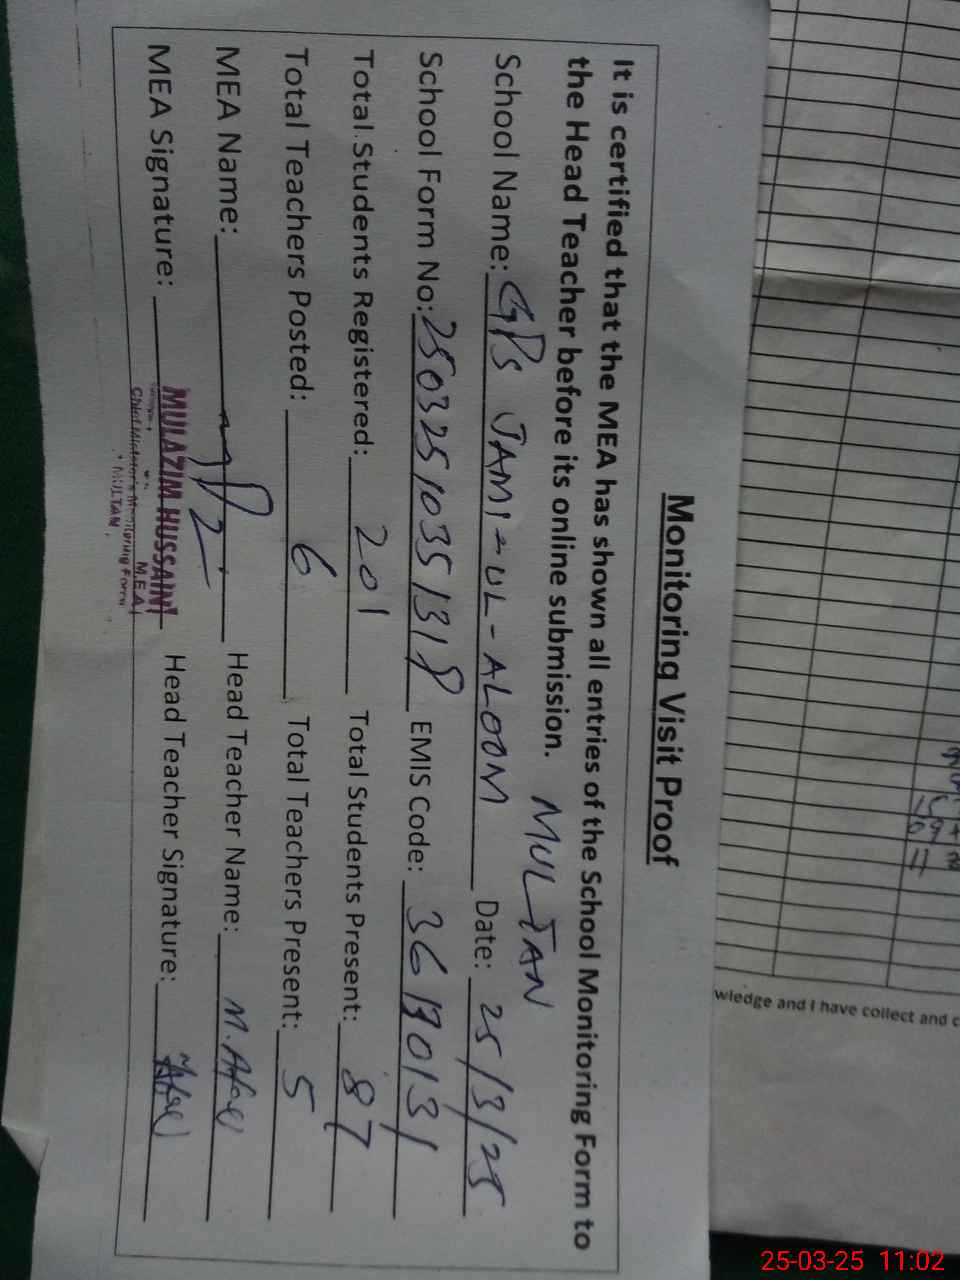 Monitoring Visit Proof
It is certified that the MEA has shown all entries of the School Monitoring Form to
the Head Teacher before its online submission. MULTAN
School Name: GPS JAMI-UL-ALOOM Date: 25/3/25
School Form No: 25032510351318 EMIS Code: 36190131
Total Students Registered: 201 Total Students Present: 87
Total Teachers Posted: 6 Total Teachers Present: 5
MEA Name: Head Teacher Name:
MEA Signature: Head Teacher Signature:
MULAZIM HUSSAIN
M.E.A
Chief Minister's Monitoring Force
MULTAN.
wledge and I have collect and c
25-03-25 11:02